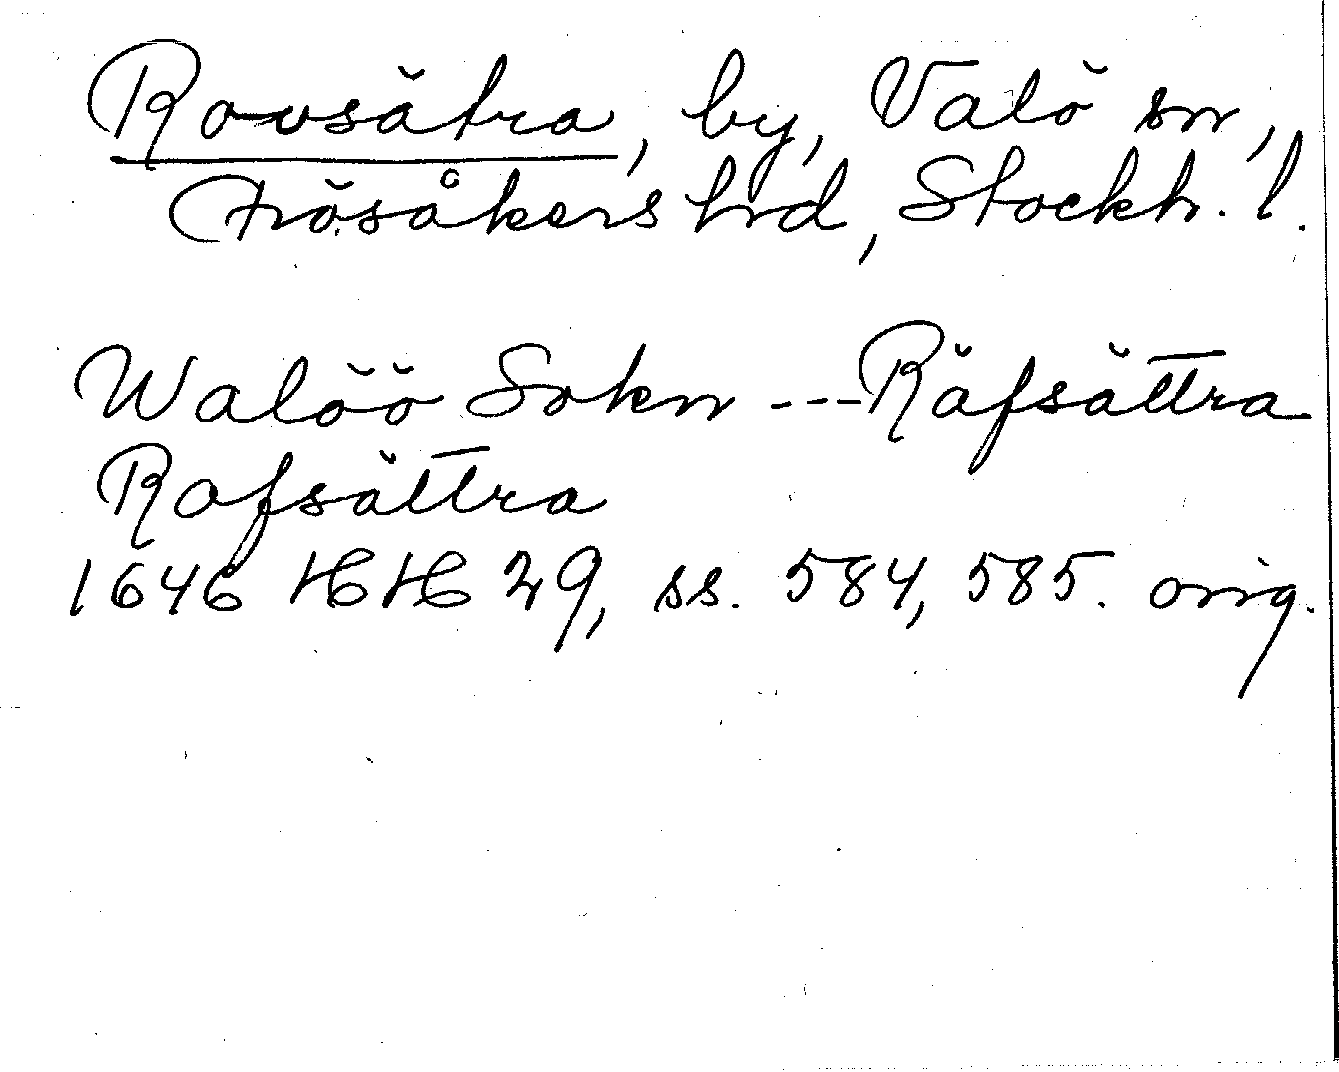 Rovsätra, by, Valö sn,
Frösåkers hrd, Stockh. l.
Walöö Sokn --- Räfsättra
Rafsättra
1646 HH 29, ss. 584, 585. orig.